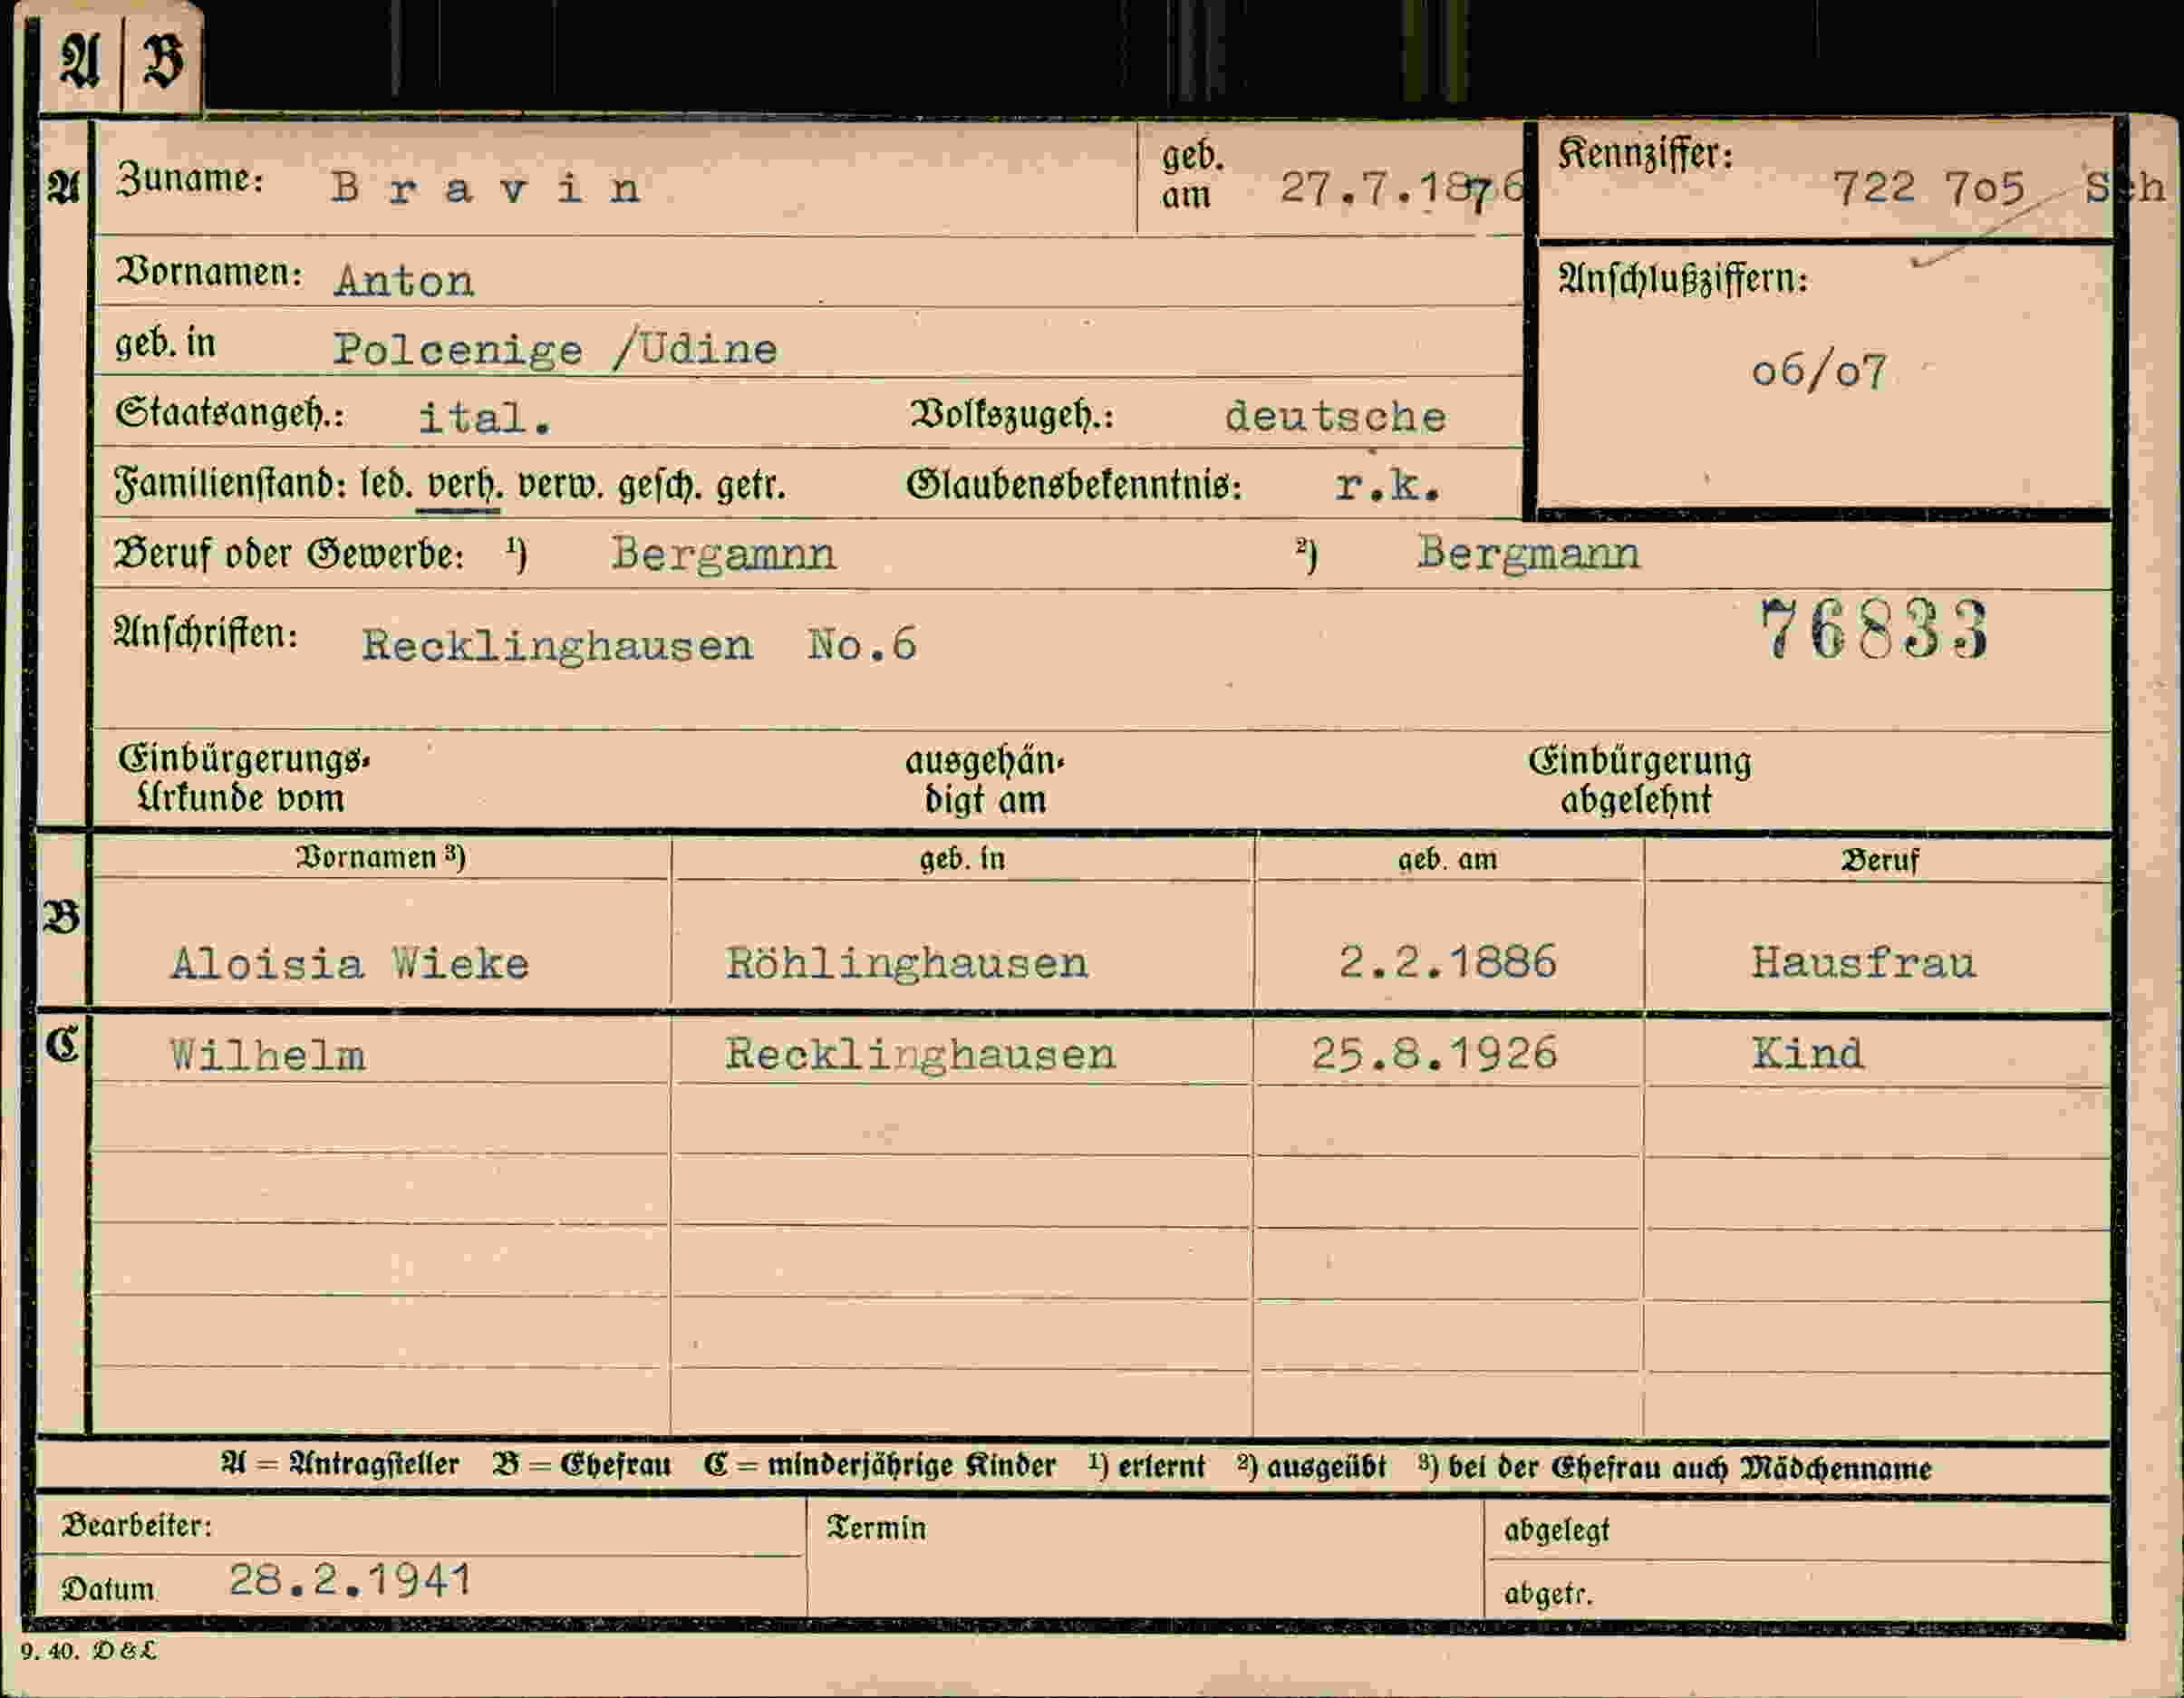 A B
A Zuname: Bravin geb. am 27.7.1876 Kennziffer: 722 7o5 Sch
Vornamen: Anton Anschlußziffern:
geb. in Polcenige /Udine o6/o7
Staatsangeh.: ital. Volkszugeh.: deutsche
Familienstand: led. verh. verw. gesch. getr. Glaubensbekenntnis: r.k.
Beruf oder Gewerbe: ¹) Bergamnn ²) Bergmann
Anschriften: Recklinghausen No.6 76833
Einbürgerungs- ausgehän- Einbürgerung
Urkunde vom digt am abgelehnt
Vornamen ³) geb. in geb. am Beruf
B Aloisia Wieke Röhlinghausen 2.2.1886 Hausfrau
C Wilhelm Recklinghausen 25.8.1926 Kind
A = Antragsteller B = Ehefrau C = minderjährige Kinder ¹) erlernt ²) ausgeübt ³) bei der Ehefrau auch Mädchenname
Bearbeiter: Termin abgelegt
Datum 28.2.1941 abgetr.
9. 40. D & L